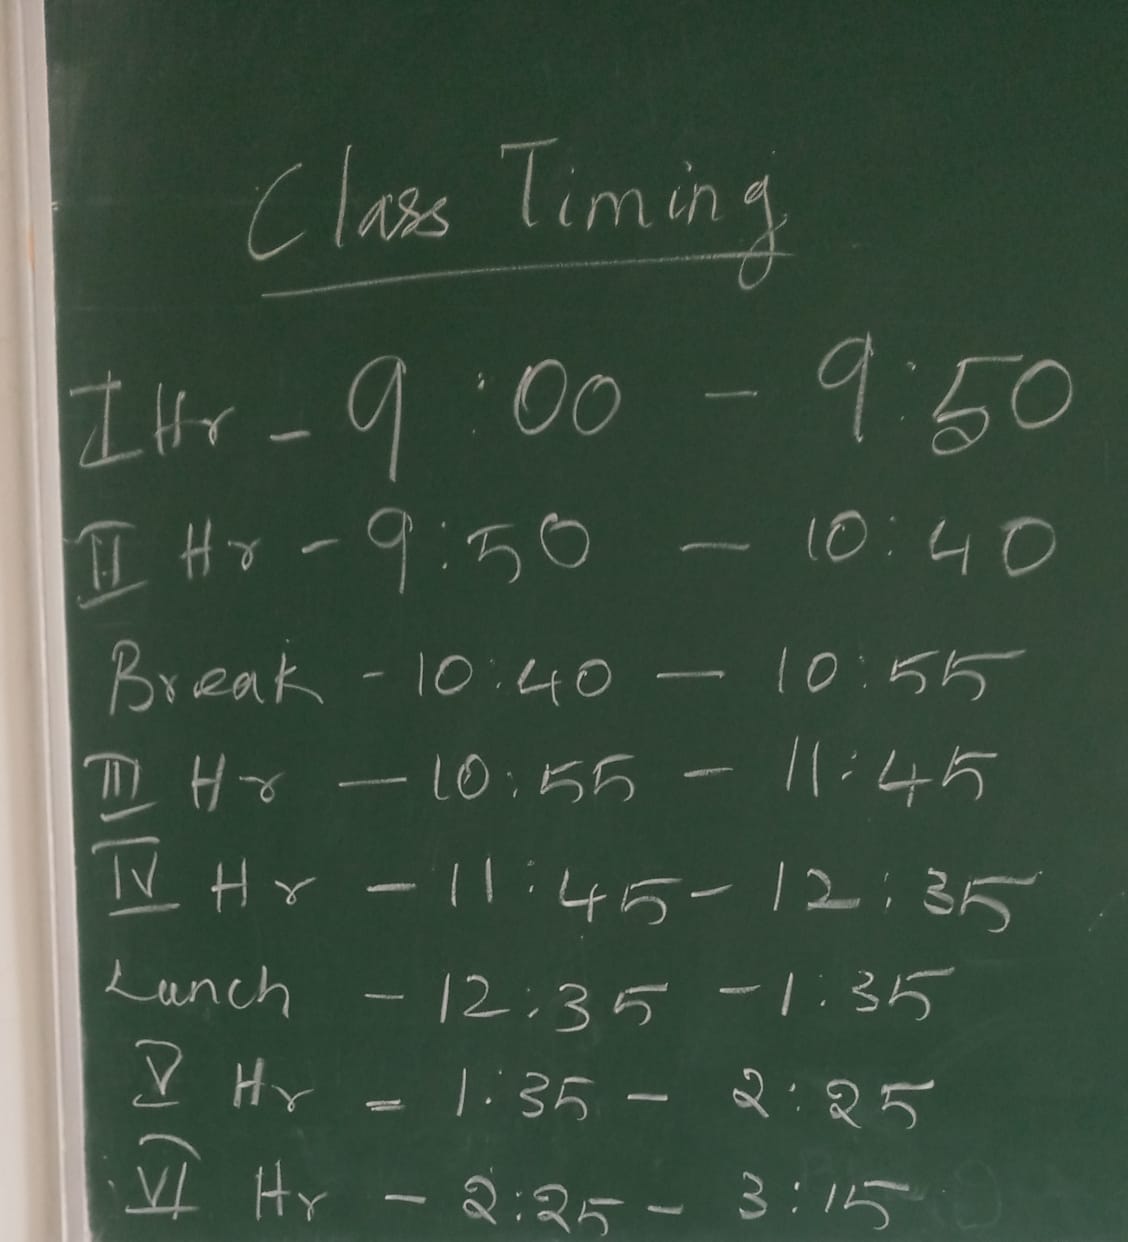 Class Timing
I Hr - 9:00 - 9:50
II Hr - 9:50 - 10:40
Break - 10:40 - 10:55
III Hr - 10:55 - 11:45
IV Hr - 11:45 - 12:35
Lunch - 12:35 - 1:35
V Hr - 1:35 - 2:25
VI Hr - 2:25 - 3:15